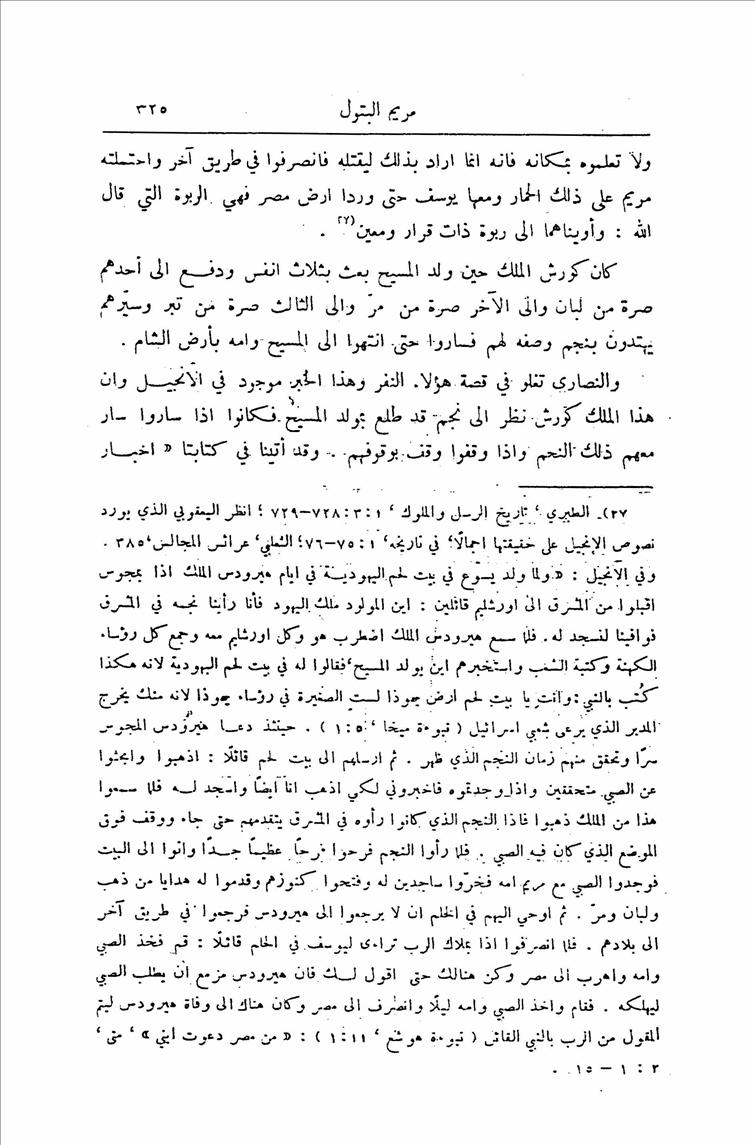 مريم البتول ٣٢٥
ولا تعلموه بمكانه فانه انما اراد بذلك ليقتله فانصرفوا في طريق آخر واحتملته
مريم على ذلك الحمار ومعها يوسف حتى وردا ارض مصر فهي الربوة التي قال
الله : وأويناهما الى ربوة ذات قرار ومعين(٢٧ .
كان كورش الملك حين ولد المسيح بعث بثلاث انفس ودفع الى أحدهم
صرة من لبان والى الآخر صرة من مرّ والى الثالث صرة من تبر وسيّرهم
يهتدون بنجم وصفه لهم فساروا حتى انتهوا الى المسيح وامه بأرض الشام .
والنصارى تغلو في قصة هؤلاء النفر وهذا الخبر موجود في الانجيل وان
هذا الملك كورش نظر الى نجم قد طلع بمولد المسيح فكانوا اذا ساروا سار
معهم ذلك النجم واذا وقفوا وقف بوقوفهم . وقد أتينا في كتابنا « اخبار
٢٧). الطبري ، تاريخ الرسل والملوك ، ١ : ٣ : ٧٢٨–٧٢٩ ؛ انظر اليعقوبي الذي يورد
نصوص الانجيل على حقيقتها اجمالًا، في تاريخه، ١ : ٧٥–٧٦؛ الثعلبي، عرائس المجالس، ٣٨٥ .
وفي الانجيل : « ولما ولد يسوع في بيت لحم اليهودية في ايام هيرودس الملك اذا بمجوس
اقبلوا من المشرق الى اورشليم قائلين : اين المولود ملك اليهود فأنا رأينا نجمه في المشرق
فوافينا لنسجد له. فلما سمع هيرودس الملك اضطرب هو وكل اورشليم معه وجمع كل رؤساء
الكهنة وكتبة الشعب واستخبرهم اين يولد المسيح، فقالوا له في بيت لحم اليهودية لانه هكذا
كُتب بالنبي : وانت يا بيت لحم ارض يهوذا لست الصغيرة في رؤساء يهوذا لانه منك يخرج
المدبر الذي يرعى شعبي اسرائيل ( نبوءة ميخا ، ٥ : ١ ) . حينئذ دعا هيرودس المجوس
سرًّا وتحقق منهم زمان النجم الذي ظهر . ثم ارسلهم الى بيت لحم قائلًا : اذهبوا وابحثوا
عن الصبي متحققين واذا وجدتموه فاخبروني لكي اذهب انا ايضًا واسجد له فلما سمعوا
هذا من الملك ذهبوا فاذا النجم الذي كانوا رأوه في المشرق يتقدمهم حتى جاء ووقف فوق
الموضع الذي كان فيه الصبي . فلما رأوا النجم فرحوا فرحًا عظيمًا جدًّا واتوا الى البيت
فوجدوا الصبي مع مريم امه فخرّوا ساجدين له وفتحوا كنوزهم وقدموا له هدايا من ذهب
ولبان ومرّ . ثم اوحي اليهم في الحلم ان لا يرجعوا الى هيرودس فرجعوا في طريق آخر
الى بلادهم . فلما انصرفوا اذا بملاك الرب تراءى ليوسف في الحلم قائلًا : قم فخذ الصبي
وامه واهرب الى مصر وكن هنالك حتى اقول لك فان هيرودس مزمع أن يطلب الصبي
ليهلكه . فقام واخذ الصبي وامه ليلًا وانصرف الى مصر وكان هناك الى وفاة هيرودس ليتم
المقول من الرب بالنبي القائل ( نبوءة هوشع ، ١١ : ١ ) : « من مصر دعوت ابني » ، متى ،
٢ : ١ – ١٥ .